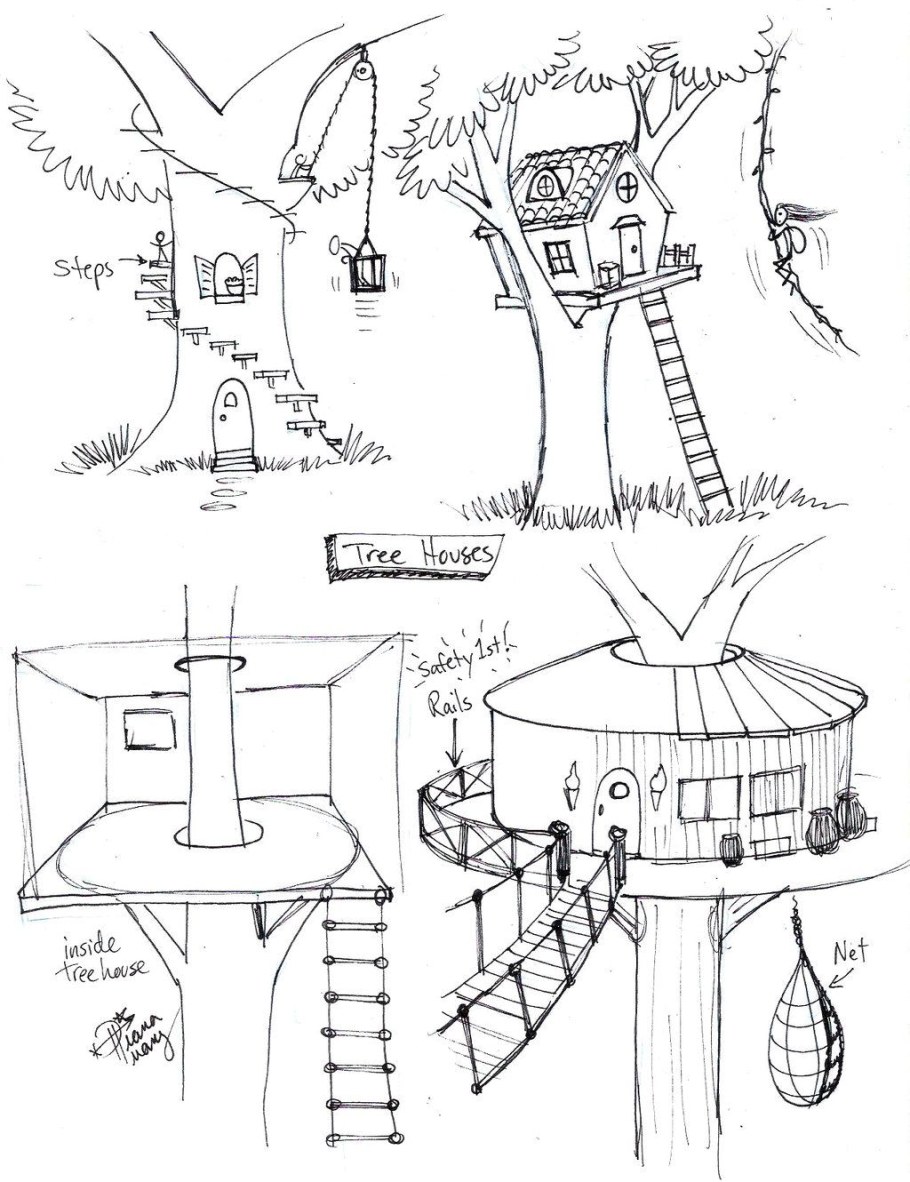 Steps
Tree Houses
Safety 1st!
Rails
inside
tree house
Diana
Net